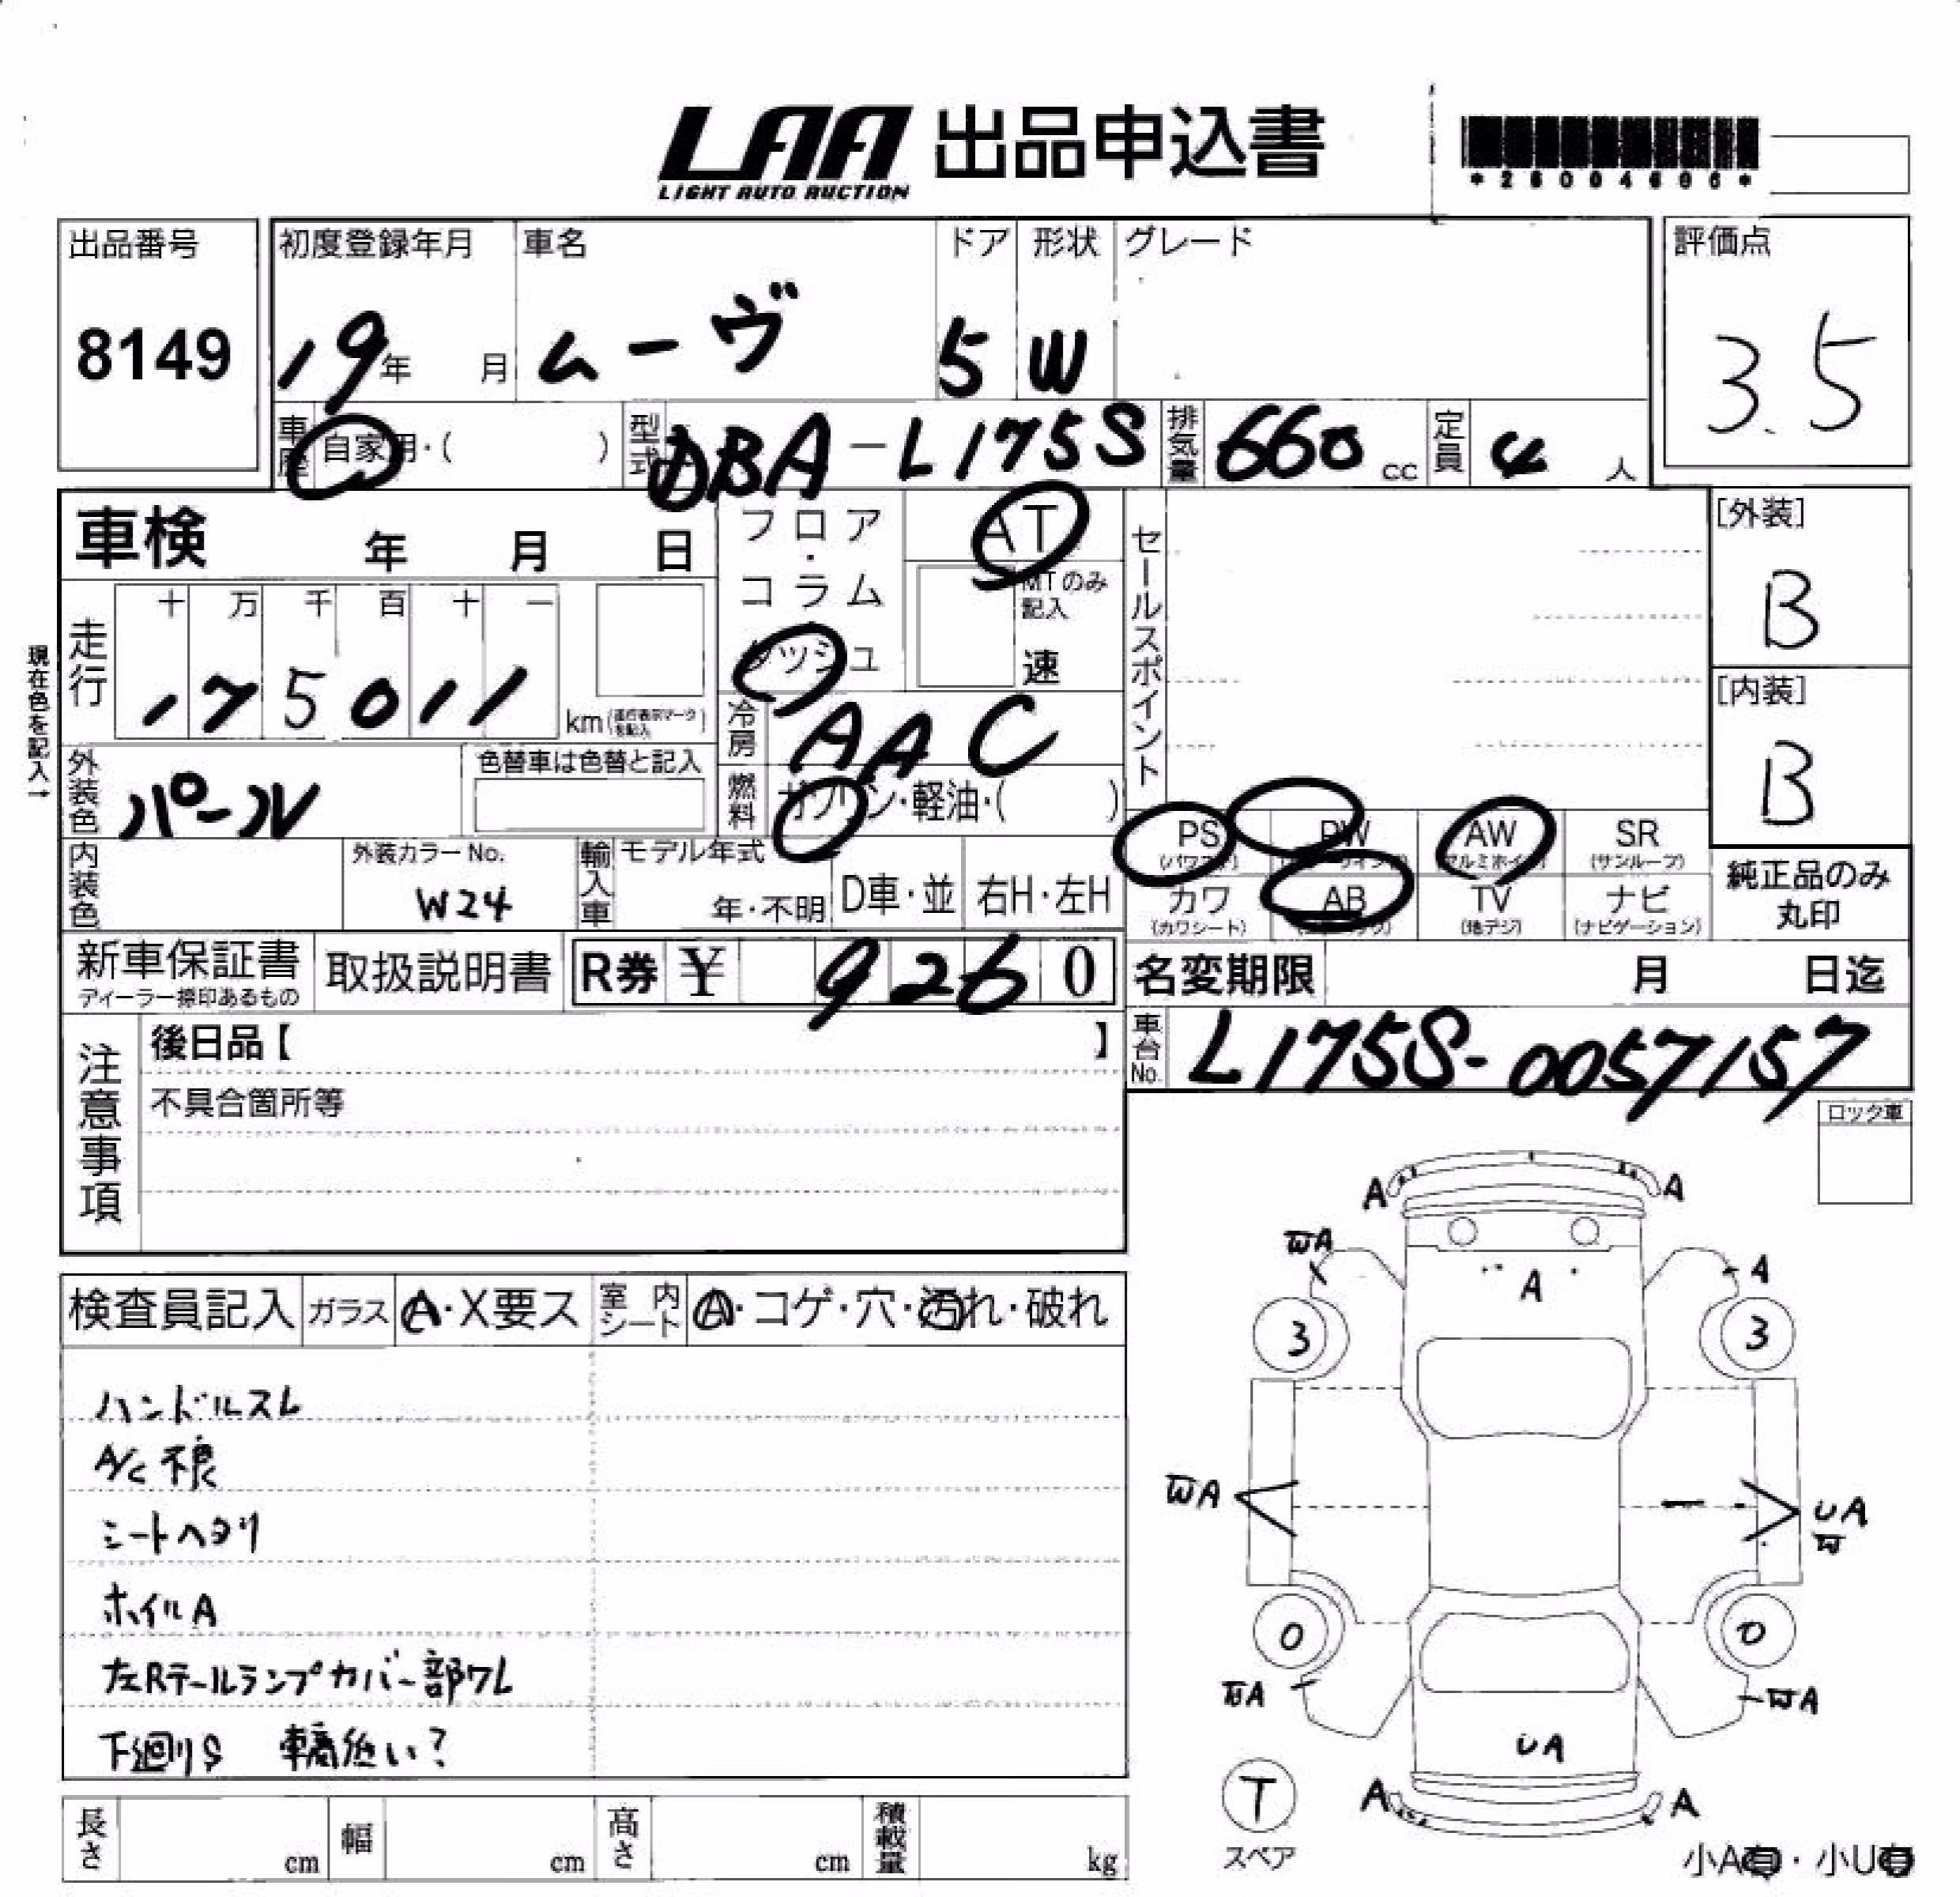 LAA 出品申込書
LIGHT AUTO AUCTION
*26004696*
出品番号 初度登録年月 車名 ドア 形状 グレード 評価点
8149 19年 月 ムーヴ 5 W 3.5
車歴 自家用・( ) 型式 DBA-L175S 排気量 660 cc 定員 4 人
車検 年 月 日
フロア・コラム・ダッシュ
AT
MTのみ記入
速
セールスポイント
[外装]
B
[内装]
B
現在色を記入→
走行 十 万 千 百 十 一
1 7 5 0 1 1 km(走行表示マークを記入)
冷房 AAC
外装色 パール 色替車は色替と記入
燃料 ガソリン・軽油・( )
PS (パワステ) PW (パワーウインドウ) AW (アルミホイル) SR (サンルーフ)
カワ (カワシート) AB (エアーバッグ) TV (地デジ) ナビ (ナビゲーション)
純正品のみ
丸印
内装色 外装カラーNo. W24 輸入車 モデル年式 年・不明 D車・並 右H・左H
新車保証書 ディーラー捺印あるもの 取扱説明書 R券 ¥ 9260
名変期限 月 日迄
車台No. L175S-0057157
注意事項
後日品【 】
不具合箇所等
ロック車
検査員記入 ガラス A・X要ス 室内シート A・コゲ・穴・汚れ・破れ
ハンドルスレ
A/C不良
シートヘタリ
ホイルA
左Rテールランプカバー部ワレ
下廻りS 車高低い?
A A
WA A A
3 3
WA UA
W
0 0
WA WA
UA
A A
T
スペア
小A有・小U有
長さ cm 幅 cm 高さ cm 積載量 kg